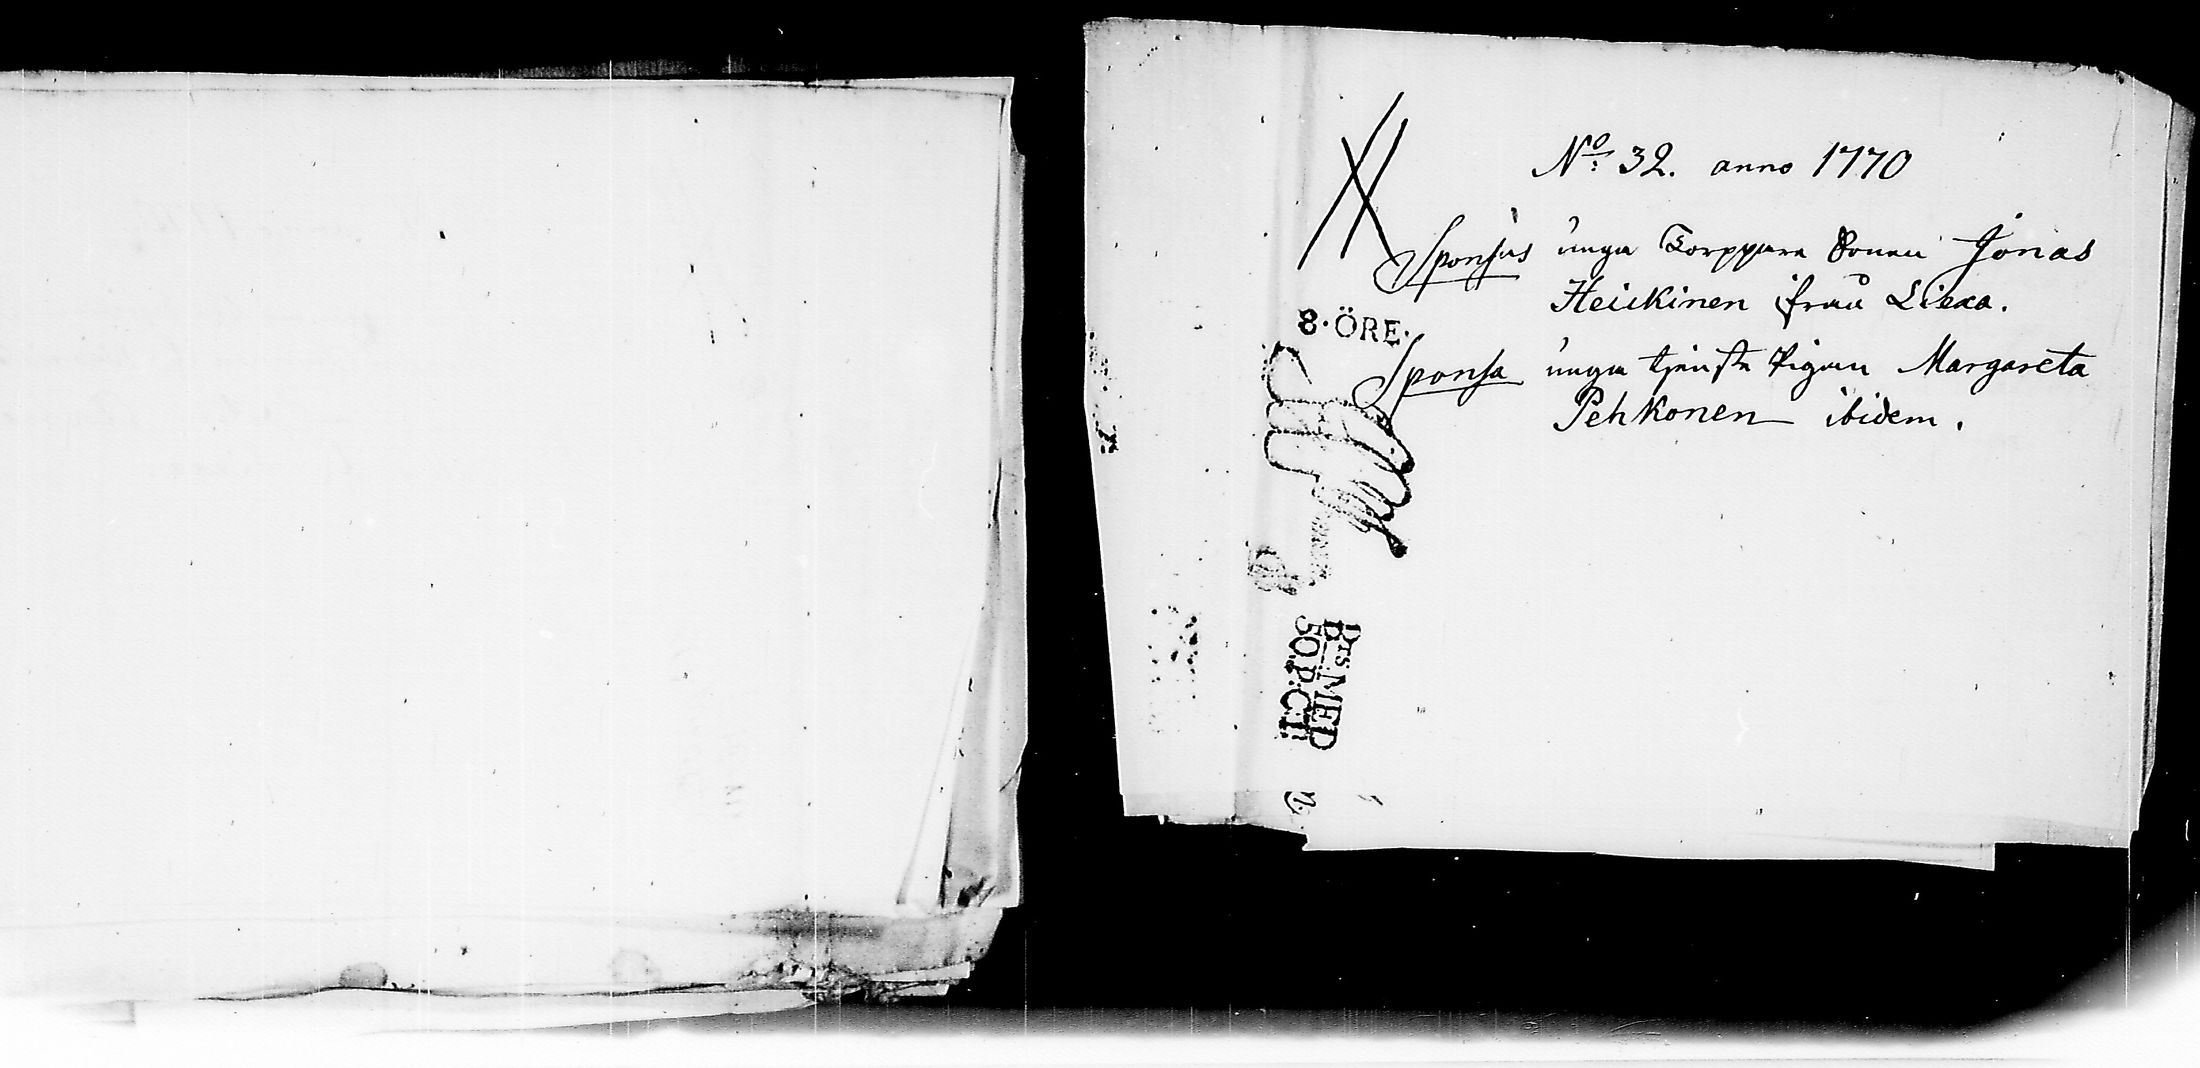 No: 32. anno 1770
Sponsus unga Torppare Sonen Jonas
Heickinen från Liexa.
8·ÖRE·
Sponsa unga tjenste Pigan Margareta
Pehkonen ibidem.
Brs MED
50 P:CT: